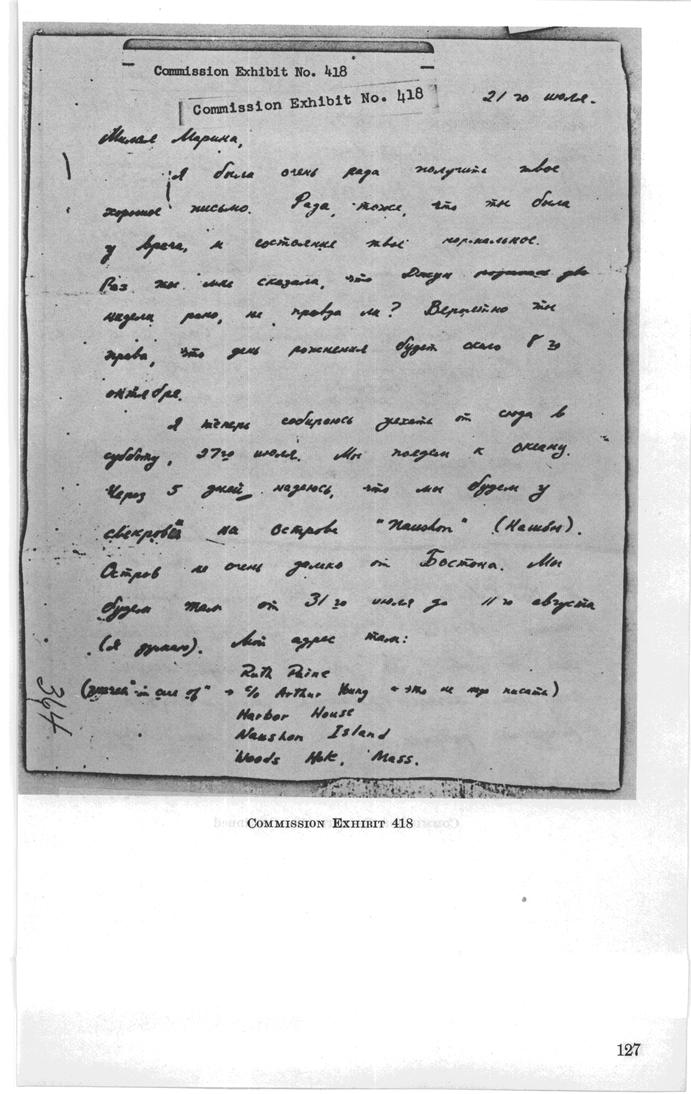 Commission Exhibit No. 418
Commission Exhibit No. 418
21 го июля.
Милая Марина,
Я была очень рада получить твое
хорошое письмо. Рада, тоже, что ты была
у врача, и состояние твое нормальное.
Раз ты мне сказала, что Джун родилась две
недели рано, не правда ли? Вероятно ты
права, что день рождения будет около 8 го
октября.
Я теперь собираюсь уехать от сюда в
субботу, 27го июля. Мы поедем к океану.
Через 5 дней, надеюсь, что мы будем у
на острове "Naushon" (Нашон).
Остров не очень далеко от Бостона. Мы
будем там от 31 го июля до 11 го августа
(я думаю). Мой адрес там:
Ruth Paine
"in care of" → c/o Arthur Young это не надо писать)
Harbor House
Naushon Island
Woods Hole, Mass.
364
COMMISSION EXHIBIT 418
127